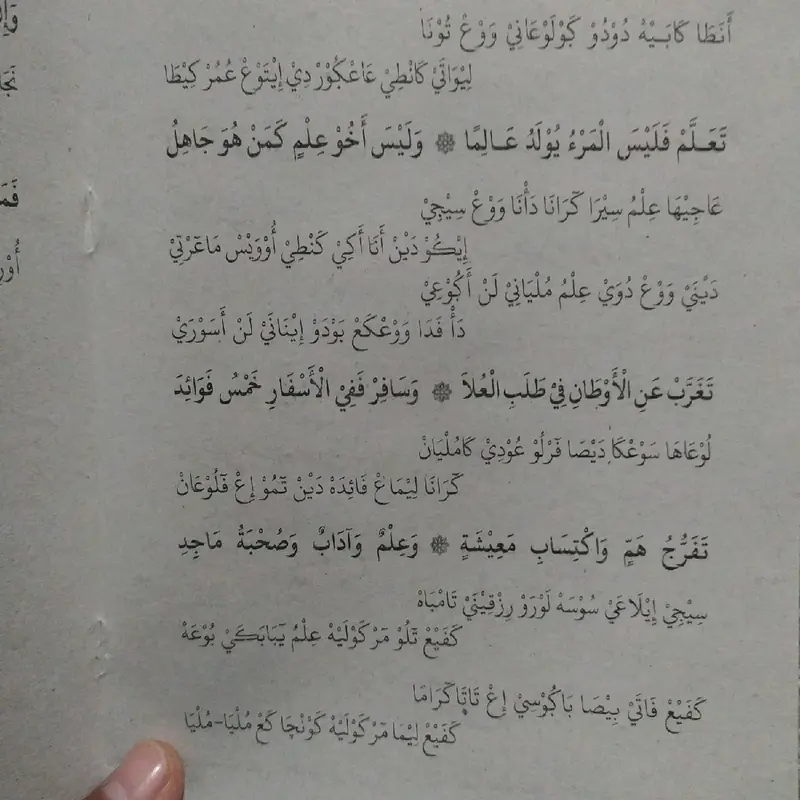 أَنَطَا كَابَـيْهْ دُوْدُوْ كَوْلَوْعَانِيْ وَوْعْ تُوْنَا
لِيْوَاتَيْ كَانْطِيْ عَاعْكُوْرْ دِيْ إِيْتَوْعْ عُمُرْ كِيْطَا
تَعَـلَّمْ فَلَيْسَ الْمَرْءُ يُوْلَدُ عَـالِمًا ۞ وَلَيْسَ أَخُوْ عِلْمٍ كَمَنْ هُوَ جَاهِلُ
عَاجِيْهَا عِلْمُ سِيْرَا كَرَانَا دَأْنَا وَوْعْ سِيْجِيْ
إِيْكُوْ دَيْنْ أَنَا أَكِيْ كَنْطِيْ أُوْوَيْسْ مَاعَرْتِيْ
دَيْنَيْ وَوْعْ دُوَيْ عِلْمُ مُلْيَانِيْ لَنْ أَكُوْعِيْ
دَأْ فَدَا وَوْعْكَعْ بَوْدَوْ إِيْنَانَيْ لَنْ أَسَوْرَيْ
تَغَرَّبْ عَنِ الْأَوْطَانِ فِيْ طَلَبِ الْعُلَا ۞ وَسَافِرْ فَفِيْ الْأَسْفَارِ خَمْسُ فَوَائِدَ
لُوْعَاهَا سَوْعْكَا دَيْصَا فَرْلُوْ عُوْدِيْ كَامُلْيَانْ
كَرَانَا لِيْمَاعْ فَائِدَهْ دَيْنْ تَمُوْ إِعْ فَلُوْعَانْ
تَفَرُّجُ هَمٍّ وَاكْتِسَابِ مَعِيْشَةٍ ۞ وَعِلْمٌ وَآدَابٌ وَصُحْبَةُ مَاجِدِ
سِيْجِيْ إِيْلَاعَيْ سُوْسَهْ لَوْرَوْ رِزْقِيْنَيْ تَامْبَاهْ
كَفَيْعْ تَلُوْ مَرْكَوْلَيْهْ عِلْمُ يَبَابَكَيْ بُوْعَهْ
كَفَيْعْ فَاتَيْ بِيْصَا بَاكُوْسِيْ إِعْ تَاتَاكَرَامَا
كَفَيْعْ لِيْمَا مَرْكَوْلَيْهْ كَوْنْچَا كَعْ مُلْيَا-مُلْيَا